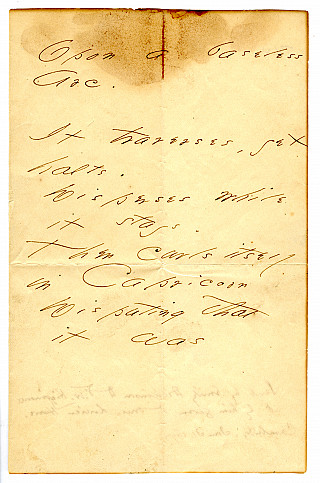 Opon a baseless
Arc.
It traverses, yet
halts.
Disperses while
it stays.
Then curls itself
in Capricorn
Disputing that
it was